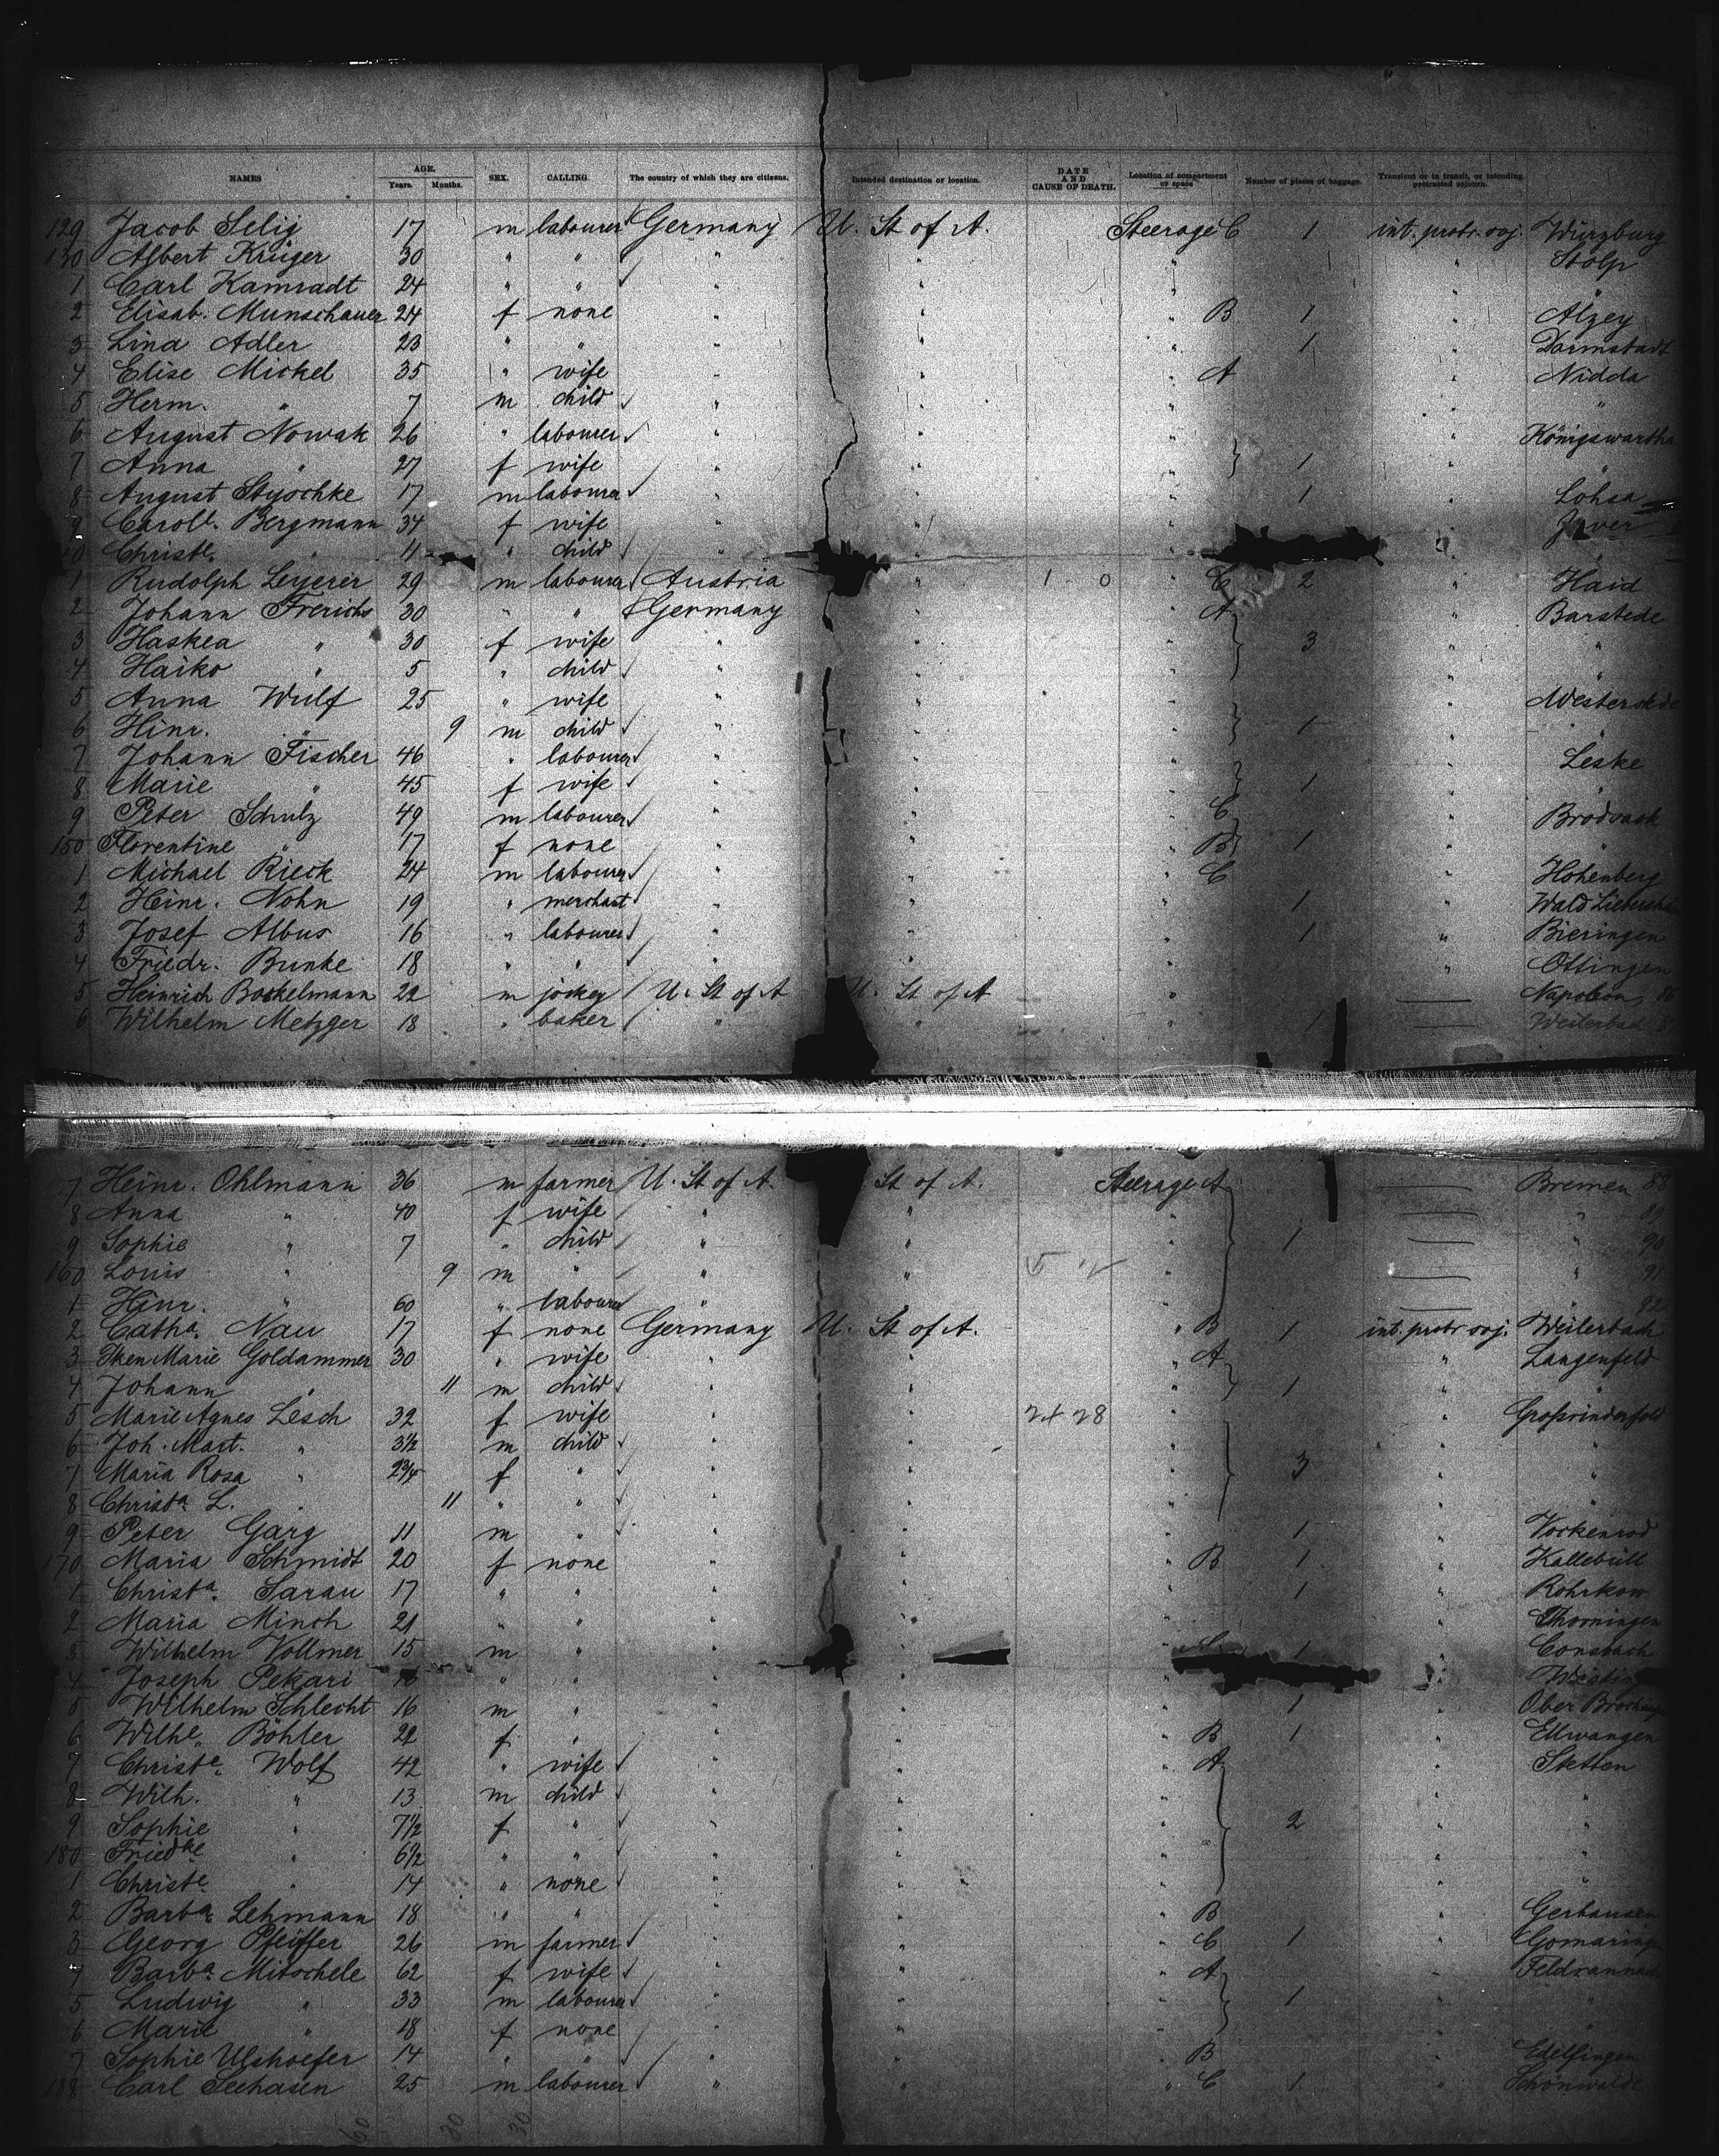 NAMES AGE. Years. Months. SEX. CALLING The country of which they are citizens. Intended destination or location. DATE AND CAUSE OF DEATH. Location of compartment or space Number of pieces of baggage. Transient or in transit, or intending protracted sojourn.
129 Jacob Selig 17 m labourer Germany U. St of A. Steerage C 1 int. protr. soj. Würzburg
130 Albert Krüger 30 " " " " " " Stolp
1 Carl Kamradt 24 " " " " " " "
2 Elisab. Munschauer 24 f none " " " B 1 " Alzey
3 Lina Adler 23 " " " " " 1 " Darmstadt
4 Elise Mickel 35 " wife " " " A " Nidda
5 Herm. " 7 m child " " " " "
6 August Nowak 26 " labourer " " " " Königswartha
7 Anna " 27 f wife " " " 1 "
8 August Styschke 17 m labourer " " " 1 " Lohsa
9 Carole. Bergmann 34 f wife " " " " Jever
40 Christe. " 11 " child " " " "
1 Rudolph Leyerer 29 m labourer Austria " 1 0 " C 2 " Haid
2 Johann Frerichs 30 " " Germany " " A " Barstede
3 Haskea " 30 f wife " " " 3 " "
4 Haiko " 5 " child " " " " "
5 Anna Wulf 25 " wife " " " " Westerstede
6 Hinr. " 9 m child " " " 1 " "
7 Johann Fischer 46 " labourer " " " " Leske
8 Marie " 45 f wife " " " 1 " "
9 Peter Schulz 49 m labourer " " " C " Brodsack
150 Florentine " 17 f none " " " B 1 " "
1 Michael Rieck 24 m labourer " " " C " Hohenberg
2 Heinr. Nohn 19 " merchant " " " 1 "
3 Josef Albus 16 " labourer " " " 1 " Bieringen
4 Friedr. Bunke 18 " " " " " " Ottingen
5 Heinrich Bockelmann 22 m jockey U. St of A U. St of A " Napoleon, 86
6 Wilhelm Metzger 18 " baker " " " 1 Weilerbach 87
7 Heinr. Ohlmann 36 m farmer U. St of A. St of A. Steerage A Bremen 88
8 Anna " 40 f wife " " " " 89
9 Sophie " 7 " child " " " 1 " 90
160 Louis " 9 m " " " " " 91
1 Hinr. " 60 " labourer " " 92
2 Catha. Nau 17 f none Germany U. St of A. " B 1 int. protr. soj. Weilerbach
3 Iken Marie Goldammer 30 " wife " " " A " Langenfeld
4 Johann " 11 m child " " " 1 " "
5 Marie Agnes Lesch 32 f wife " " 24 28 " " Grofsrinderfeld
6 Joh. Mart. " 3½ m child " " " " "
7 Maria Rosa " 2¾ f " " " " 3 " "
8 Christa. L. " 11 " " " " " " "
9 Peter Garg 11 m " " " " 1 " Vockenrod
170 Maria Schmidt 20 f none " " " B 1 " Kallebüll
1 Christa. Sarau 17 " " " " " 1 " Röhrkow
2 Maria Minch 21 " " " " " " Thorningen
3 Wilhelm Vollmer 15 m " " " C 1 " Consbach
4 Joseph Pekari " " " " "
5 Wilhelm Schlecht 16 m " " " 1 " Ober
6 Wilhe. Böhler 22 f " " " " B 1 " Ellwangen
7 Christe. Wolf 42 " wife " " " A " Stetten
8 Wilh. " 13 m child " " " " "
9 Sophie " 7½ f " " " " 2 " "
180 Friedke " 6½ " " " " " " "
1 Christe. " 14 " none " " " " "
2 Barba. Lehmann 18 " " " " " B " Gerhausen
3 Georg Pfeiffer 26 m farmer " " " C 1 " Gomaringen
4 Barba. Mitschele 62 f wife " " " A " Feldrennach
5 Ludwig " 33 m labourer " " " 1 " "
6 Marie " 18 f none " " " " "
7 Sophie Ulshoefer 14 " " " " " B " Edelfingen
188 Carl Seehasen 25 m labourer " " " C 1 " Schönwalde
60 30 30